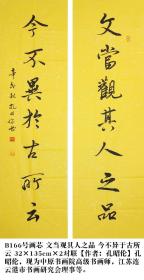 文當觀其人之品
今不異於古所云
B166号画芯 文当观其人之品 今不异于古所
云 32×135cm×2对联【作者：孔昭伦】孔
昭伦，现为中原书画院高级书画师，江苏连
云港市书画研究会理事等。